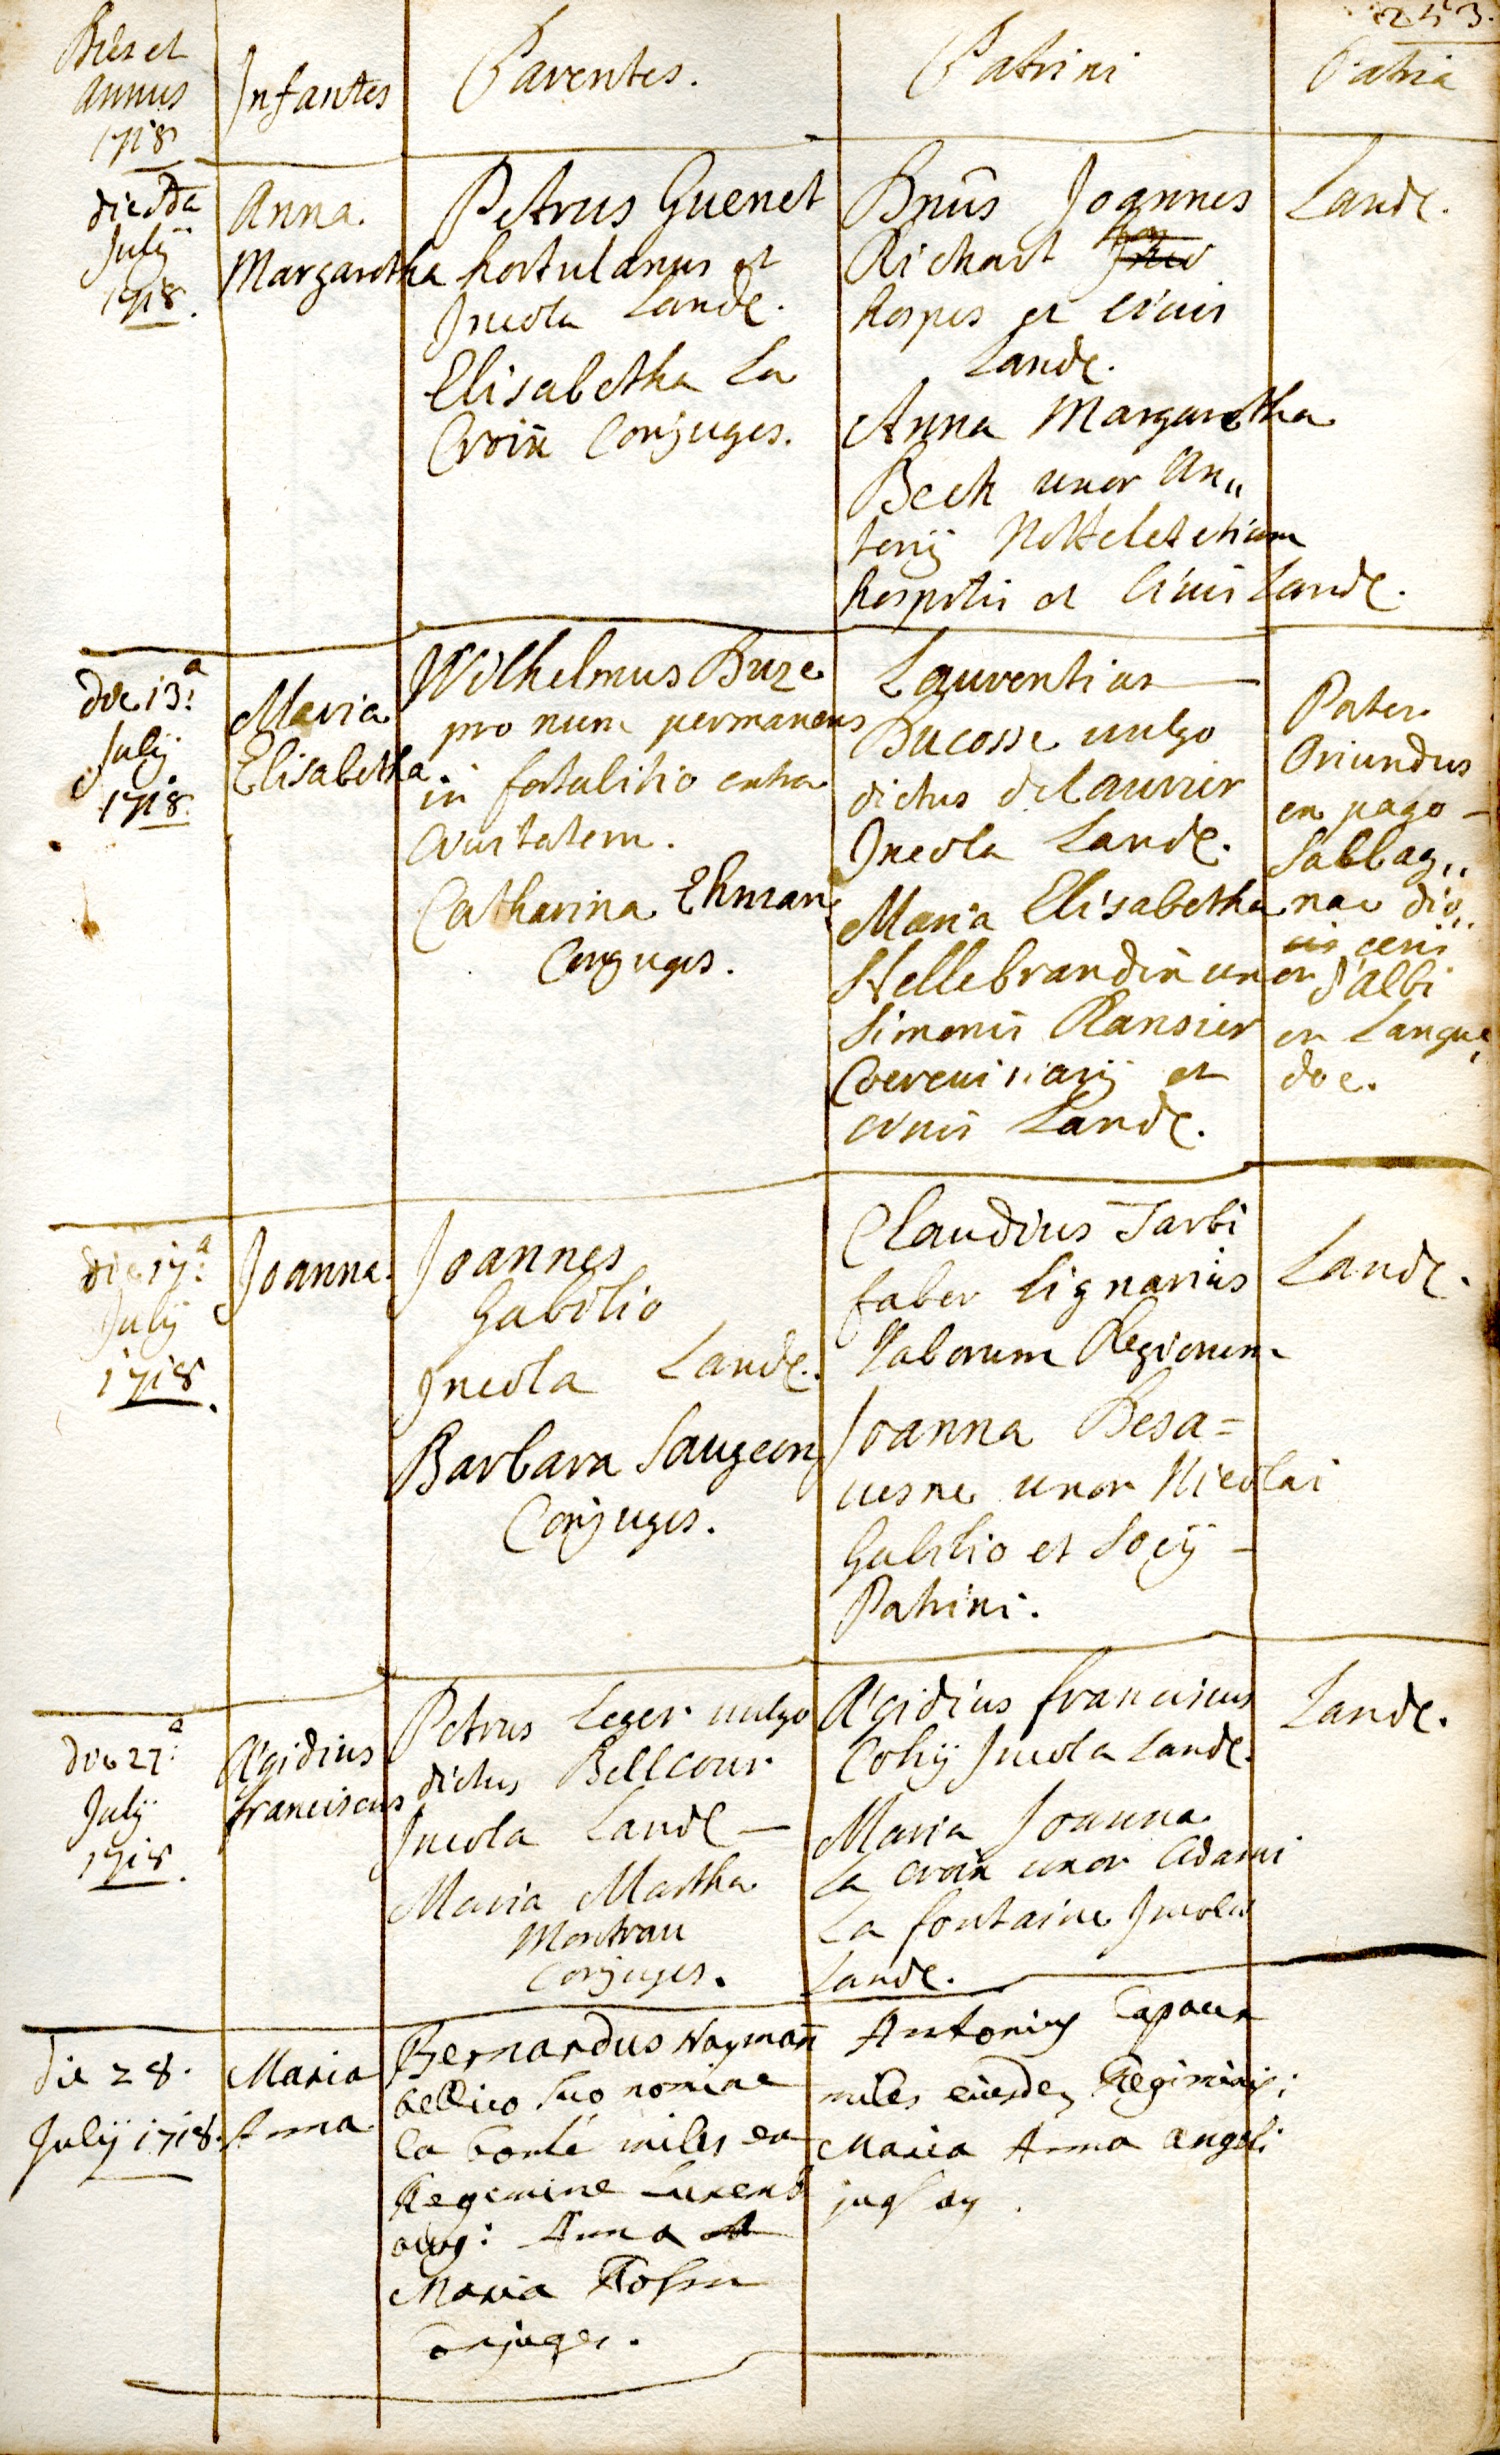 253.
Dies et
annus
1718
Infantes
Parentes.
Patrini
Patria
die
July
1718.
Anna
Margaretha
Petrus Guenet
hortulanus et
Incola Landæ.
Elisabetha La
Croix Conjuges.
Dnūs Joannes
Richart
hospes et Civis
Landæ.
Anna Margaretha
Bech uxor An„
tonij Nottelet etiam
hospitis et Civis Landæ.
Landæ.
die 13ª
July
1718.
Maria
Elisabetha.
Wilhelmus Buze
pro nunc permanens
in fortalitio extra
civitatem.
Catharina Ehman
Conjuges.
Laurentius
Ducosse vulgo
dictus de laurier
Incola Landæ.
Maria Elisabetha
Hellebrandin uxor
Simonis Ransier
Cerevisiarij et
civis Landæ.
Pater
Oriundus
ex pago
Sallbag„
nac dio„
ceris
d'albi
en Langue„
doc.
die 17ª
July
1718.
Joanna.
Joannes
Gabilio
Incola Landæ.
Barbara Saugeon
Conjuges.
Claudius Tarbi
faber lignarius
Regiorum
Joanna Besa=
uesne uxor Nicolai
Gabilio et Socij
Patrini.
Landæ.
die 27ª
July
1718.
Ægidius
franciscus
Petrus Leger vulgo
dictus Bellcour
Incola Landæ
Maria Martha
Montrau
Conjuges.
Ægidius franciscus
Cohij Incola Landæ.
Maria Joanna
La croix uxor Adami
La fontaine Incolæ
Landæ.
Landæ.
die 28.
July 1718.
Maria
Anna
Bernardus Nayman
bellico suo nomine
la bonté miles ex
Regimine Luxenb
Anna
Maria
Conjuges.
Antonius
miles eiusdem Regiminis;
Maria Anna